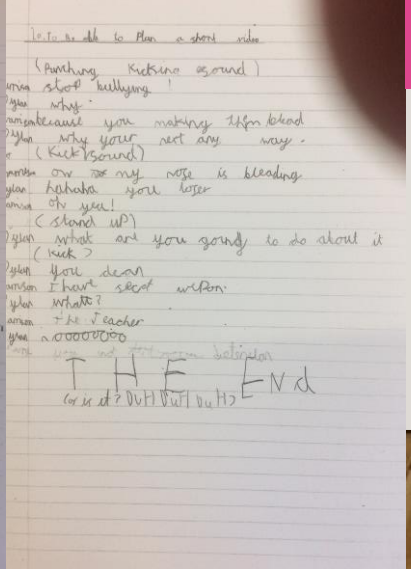 Lo. To be able to Plan a short video
(Punching kicking sound)
stop bullying!
ylan why.
because you making them blead
ylan why your next any way.
(Kick sound)
ow my nose is bleading
ylan hahaha you loser
oh yea!
(stand up)
ylan what are you going to do about it
(Kick)
ylan you dean
I have secot wepon.
ylan whatt?
the Teacher
ylan nooooooooo
THE ENd
(or is it? DUH DUH DUH)